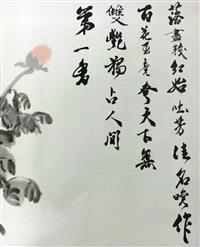 落盡殘紅始吐芳佳名喚作
百花王竞夸天下無
雙艷獨占人间
第一香